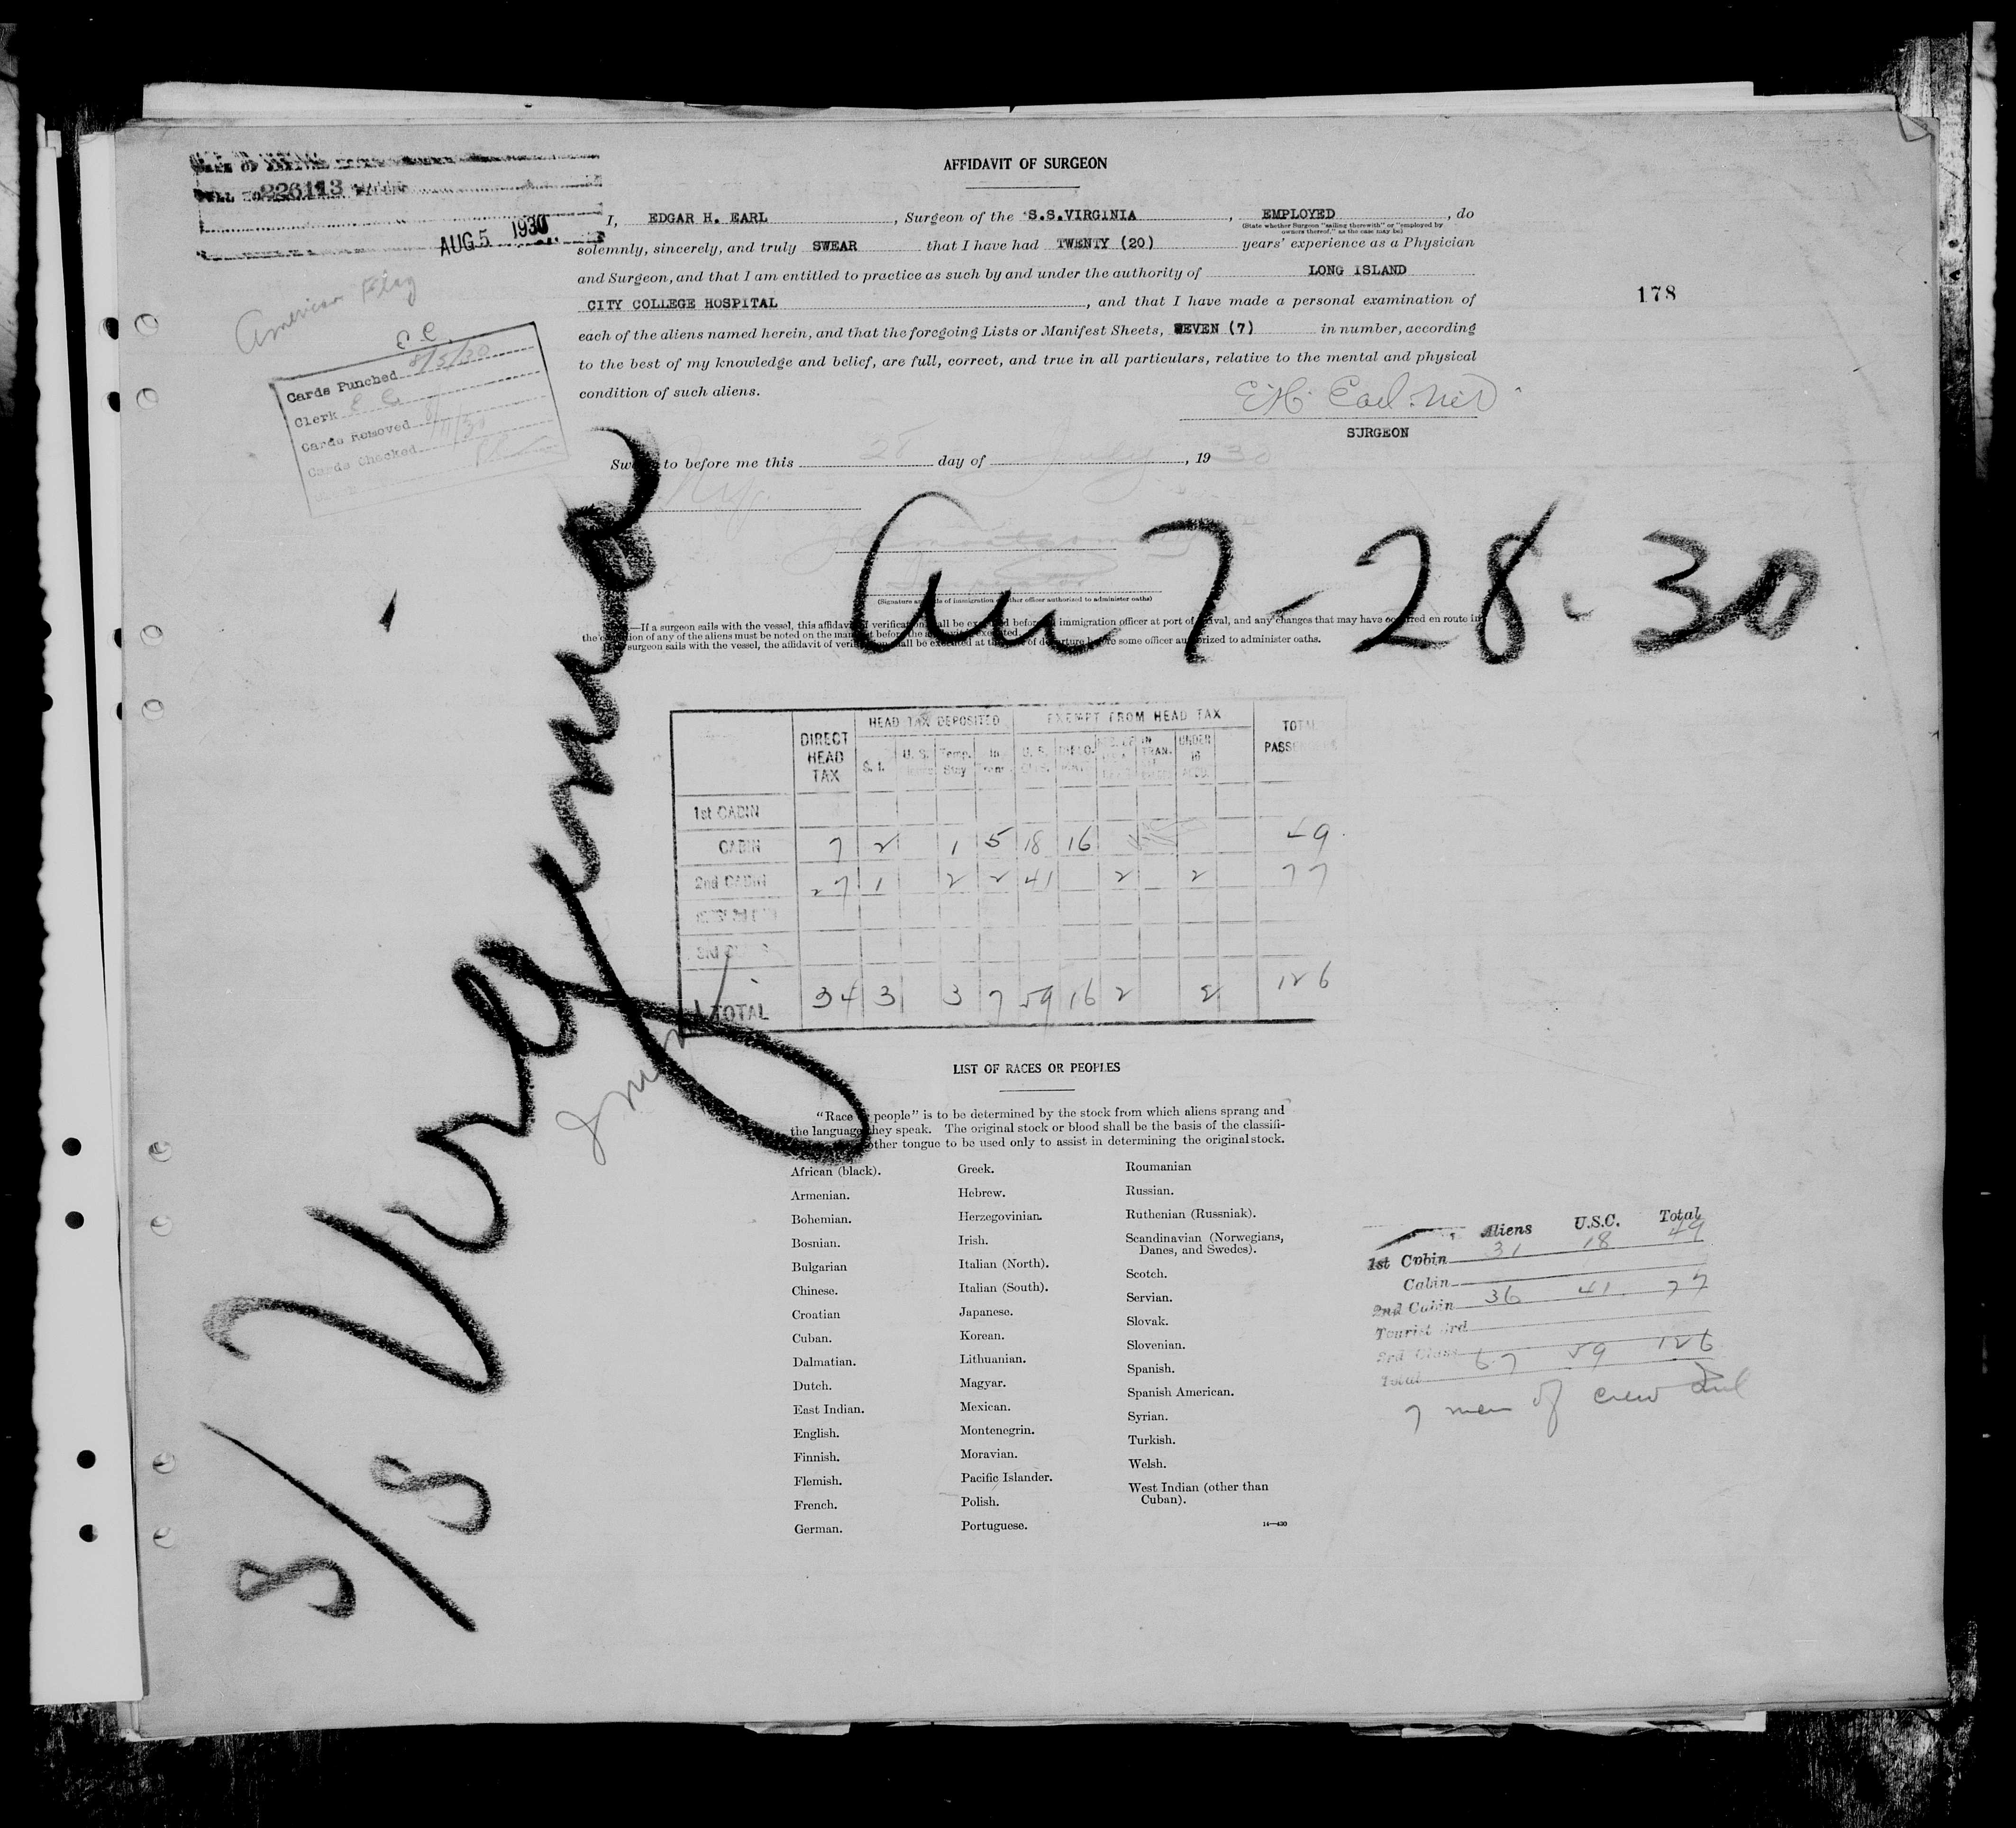 AFFIDAVIT OF SURGEON
226113
AUG 5 1930
American Flag
178
I, EDGAR H. EARL, Surgeon of the S.S.VIRGINIA, EMPLOYED, do
(State whether Surgeon "sailing therewith" or "employed by
owners thereof," as the case may be)
solemnly, sincerely, and truly SWEAR that I have had TWENTY (20) years' experience as a Physician
and Surgeon, and that I am entitled to practice as such by and under the authority of LONG ISLAND
CITY COLLEGE HOSPITAL, and that I have made a personal examination of
each of the aliens named herein, and that the foregoing Lists or Manifest Sheets, SEVEN (7) in number, according
to the best of my knowledge and belief, are full, correct, and true in all particulars, relative to the mental and physical
condition of such aliens.
SURGEON
Cards Punched 8/5/30
Clerk
Cards Removed
Cards Checked
to before me this 28 day of July, 1930
7-28-30
If a surgeon sails with the vessel, this immigration officer at port of and any changes that may have en route in
of any of the aliens must be noted on the
surgeon sails with the vessel, the affidavit of some officer to administer oaths.
Virginia
8/8
HEAD TAX DEPOSITED EXEMPT FROM HEAD TAX
DIRECT HEAD TAX S. I. U. S. Temp. Stay In U. S. TRAN. UNDER 16 TOTAL
1st CABIN
CABIN 7 2 1 5 18 16 49
2nd CABIN 27 1 2 2 41 2 2 77
TOTAL 34 3 3 7 59 16 2 2 126
LIST OF RACES OR PEOPLES
"Race people" is to be determined by the stock from which aliens sprang and
the language they speak. The original stock or blood shall be the basis of the classifi-
other tongue to be used only to assist in determining the original stock.
African (black).
Armenian.
Bohemian.
Bosnian.
Bulgarian
Chinese.
Croatian
Cuban.
Dalmatian.
Dutch.
East Indian.
English.
Finnish.
Flemish.
French.
German.
Greek.
Hebrew.
Herzegovinian.
Irish.
Italian (North).
Italian (South).
Japanese.
Korean.
Lithuanian.
Magyar.
Mexican.
Montenegrin.
Moravian.
Pacific Islander.
Polish.
Portuguese.
Roumanian
Russian.
Ruthenian (Russniak).
Scandinavian (Norwegians,
Danes, and Swedes).
Scotch.
Servian.
Slovak.
Slovenian.
Spanish.
Spanish American.
Syrian.
Turkish.
Welsh.
West Indian (other than
Cuban).
14—430
Aliens U.S.C. Total
1st Cabin 31 18 49
Cabin
2nd Cabin 36 41 77
Tourist 3rd
3rd Class
Total 67 59 126
7 men of crew